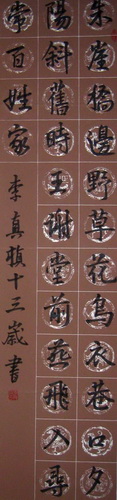 朱雀橋邊野草花烏衣巷口夕
陽斜舊時王謝堂前燕飛入尋
常百姓家
李真十三歲書